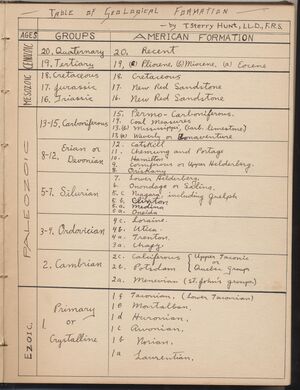 TABLE OF GEOLOGICAL FORMATION
— by T. Sterry Hunt, LL.D., F.R.S.
AGES GROUPS AMERICAN FORMATION
CENOZOIC
20. Quaternary 20. Recent
19. Tertiary 19. (c) Pliocene, (b) Miocene, (a) Eocene
MESOZOIC
18. Cretaceous 18. Cretaceous
17. Jurassic 17. New Red Sandstone
16. Triassic 16. New Red Sandstone
PALEOZOIC
13-15. Carboniferous
15. Permo-Carboniferous.
14. Coal Measures
13. (b) Mississippi, (Carb. limestone)
13 (a) Waverly or Bonaventure
8-12. Erian or Devonian
12. Catskill
11. Chemung and Portage
10. Hamilton
9. Corniferous or Upper Helderberg.
8. Oriskany
5-7. Silurian
7. Lower Helderberg.
6. Onondaga or Salina.
5. c Niagara, including Guelph
5 b. Clinton
5 a. Medina
5 a. Oneida
3-4. Ordovician
4 c. Loraine.
4 b. Utica.
4 a. Trenton.
3 a. Chazy.
2. Cambrian
2 c. Calciferous Upper Taconic
2 b. Potsdam or Quebec group
2 a. Menevian (St. John's group)
EZOIC.
1 Primary or Crystalline
1 f Taconian, (Lower Taconian)
1 e Montalban,
1 d Huronian,
1 c Arvonian,
1 b Norian,
1 a Laurentian,